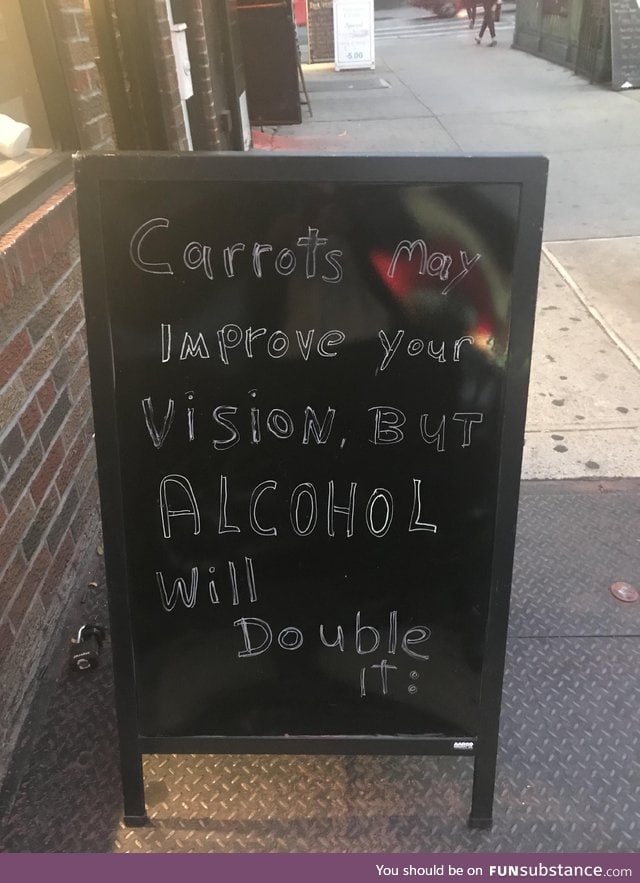 5.00
Carrots May
IMPROVE Your
VISION, BUT
ALCOHOL
Will
Double
IT:
You should be on FUNsubstance.com